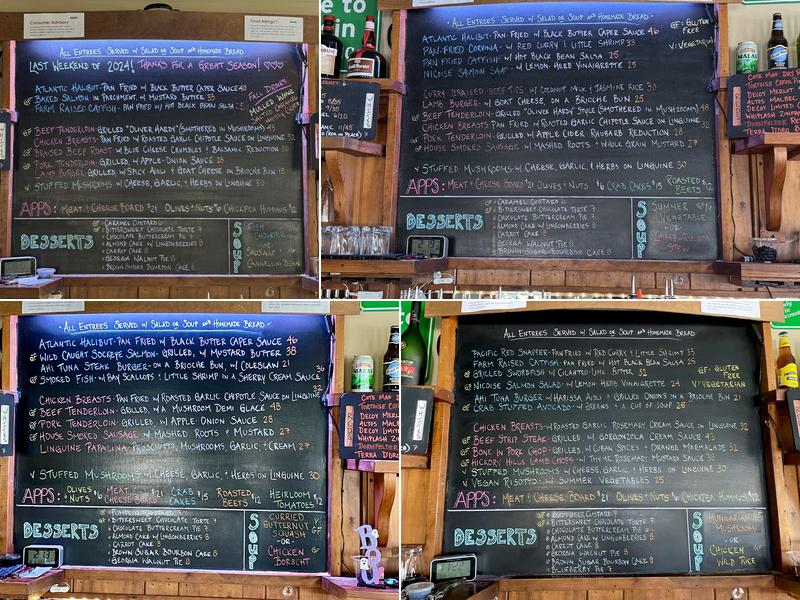 Consumer Advisory
Food Allergy?
ALL ENTREES SERVED W/ SALAD OR SOUP AND HOMEMADE BREAD
LAST WEEKEND OF 2024! THANKS FOR A GREAT SEASON!
ATLANTIC HALIBUT- PAN FRIED W/ BLACK BUTTER CAPER SAUCE 46
GF BAKED SALMON IN PARCHMENT, W/ MUSTARD BUTTER
FARM RAISED CATFISH- PAN FRIED W/ HOT BLACK BEAN SALSA 25
FALL DRINKS
MULLED WINE
GF BEEF TENDERLOIN- GRILLED "OLIVER HARDY" (SMOTHERED IN MUSHROOMS) 48
CHICKEN BREASTS- PAN FRIED W/ ROASTED GARLIC CHIPOTLE SAUCE ON LINGUINE 32
GF BRAISED BEEF ROAST W/ BLUE CHEESE CRUMBLES & BALSAMIC REDUCTION
GF PORK TENDERLOIN- GRILLED, W/ APPLE-ONION SAUCE 28
LAMB BURGER- GRILLED, W/ SPICY AIOLI & GOAT CHEESE ON BRIOCHE BUN
V STUFFED MUSHROOMS W/ CHEESE, GARLIC, & HERBS ON LINGUINE 30
APPS: MEAT & CHEESE BOARD $21 OLIVES & NUTS $6 CHICKPEA HUMMUS $12
DESSERTS
GF CARAMEL CUSTARD
GF BITTERSWEET CHOCOLATE TORTE 7
CHOCOLATE BUTTERCREAM PIE 7
ALMOND CAKE W/ LINGONBERRIES 8
CARROT CAKE 8
GEORGIA WALNUT PIE 8
BROWN SUGAR BOURBON CAKE 8
SOUP
FISH CHOWDER
-OR-
SAUSAGE &
CANNELLINI BEAN
ALL ENTREES SERVED W/ SALAD OR SOUP AND HOMEMADE BREAD
GF- GLUTEN FREE
V: VEGETARIAN
ATLANTIC HALIBUT- PAN FRIED W/ BLACK BUTTER CAPER SAUCE 46
PAN-FRIED CORVINA- W/ RED CURRY & LITTLE SHRIMP 33
PAN FRIED CATFISH W/ HOT BLACK BEAN SALSA 25
NICOISE SALMON SALAD- W/ LEMON HERB VINAIGRETTE 25
CURRY BRAISED BEEF TIPS W/ COCONUT MILK & JASMINE RICE 30
LAMB BURGER- W/ GOAT CHEESE, ON A BRIOCHE BUN 25
GF BEEF TENDERLOIN- GRILLED (OLIVER HARDY STYLE (SMOTHERED IN MUSHROOMS) 48
CHICKEN BREASTS PAN FRIED W/ ROASTED GARLIC CHIPOTLE SAUCE ON LINGUINE 32
GF PORK TENDERLOIN- GRILLED, W/ APPLE CIDER RHUBARB REDUCTION 28
GF HOUSE SMOKED SAUSAGE W/ MASHED ROOTS & WHOLE GRAIN MUSTARD 27
V STUFFED MUSHROOMS W/ CHEESE, GARLIC, & HERBS ON LINGUINE 30
APPS: MEAT & CHEESE BOARD $21 OLIVES & NUTS $6 CRAB CAKES $15 ROASTED BEETS $12
DESSERTS
GF CARAMEL CUSTARD 6
GF BITTERSWEET CHOCOLATE TORTE 7
CHOCOLATE BUTTERCREAM PIE 7
ALMOND CAKE W/ LINGONBERRIES 8
CARROT CAKE
GEORGIA WALNUT PIE 8
BROWN SUGAR BOURBON CAKE 8
SOUP
SUMMER
VEGETABLE
-OR-
STEW
ALL ENTREES SERVED W/ SALAD OR SOUP AND HOMEMADE BREAD
ATLANTIC HALIBUT- PAN FRIED W/ BLACK BUTTER CAPER SAUCE 46
GF WILD CAUGHT SOCKEYE SALMON- GRILLED, W/ MUSTARD BUTTER 38
AHI TUNA STEAK BURGER- ON A BRIOCHE BUN, W/ COLESLAW 21
GF SMOKED FISH- W/ BAY SCALLOPS & LITTLE SHRIMP IN A SHERRY CREAM SAUCE 36
CHICKEN BREASTS- PAN FRIED W/ ROASTED GARLIC CHIPOTLE SAUCE ON LINGUINE 32
GF BEEF TENDERLOIN- GRILLED, W/ A MUSHROOM DEMI GLACE 48
GF PORK TENDERLOIN- GRILLED, W/ APPLE ONION SAUCE 28
GF HOUSE SMOKED SAUSAGE W/ MASHED ROOTS & MUSTARD 27
LINGUINE PAPALINA- PROSCIUTTO, MUSHROOMS, GARLIC, & CREAM 27
V STUFFED MUSHROOMS- W/ CHEESE, GARLIC, & HERBS ON LINGUINE 30
APPS: OLIVES & NUTS $6 MEAT & CHEESE BOARD $21 CRAB CAKES $15 ROASTED BEETS $12 HEIRLOOM TOMATOES $12
DESSERTS
GF BITTERSWEET CHOCOLATE TORTE 7
CHOCOLATE BUTTERCREAM PIE 7
ALMOND CAKE W/ LINGONBERRIES 8
CARROT CAKE 8
BROWN SUGAR BOURBON CAKE 8
GEORGIA WALNUT PIE 8
SOUP
CURRIED
BUTTERNUT
SQUASH
-OR-
CHICKEN
BORSCHT
V
GF
ALL ENTREES SERVED W/ SALAD OR SOUP AND HOMEMADE BREAD
PACIFIC RED SNAPPER- PAN FRIED W/ RED CURRY & LITTLE SHRIMP 33
FARM RAISED CATFISH- PAN FRIED W/ HOT BLACK BEAN SALSA 25
GF GRILLED SWORDFISH W/ CILANTRO-LIME BUTTER 32
GF NICOISE SALMON SALAD- W/ LEMON HERB VINAIGRETTE 24
AHI TUNA BURGER W/ HARISSA AIOLI & GRILLED ONIONS ON A BRIOCHE BUN 21
GF CRAB STUFFED AVOCADO- W/ GREENS & A CUP OF SOUP 25
GF: GLUTEN FREE
V: VEGETARIAN
CHICKEN BREASTS- W/ ROASTED GARLIC ROSEMARY CREAM SAUCE ON LINGUINE 32
GF BEEF STRIP STEAK- GRILLED, W/ GORGONZOLA CREAM SAUCE 43
GF BONE IN PORK CHOP- GRILLED, W/ CUBAN SPICES & ORANGE MARMALADE 32
GF HICKORY HILLS LAMB CHOPS- W/ THYME ROSEMARY MUSTARD SAUCE 38
V STUFFED MUSHROOMS- W/ CHEESE, GARLIC, & HERBS ON LINGUINE 30
V VEGAN RISOTTO- W/ SUMMER VEGETABLES 25
APPS: MEAT & CHEESE BOARD $21 OLIVES & NUTS $6 CHICKPEA HUMMUS $12
DESSERTS
GF BITTERSWEET CHOCOLATE TORTE 7
CHOCOLATE BUTTERCREAM PIE
ALMOND CAKE W/ LINGONBERRIES 8
CARROT CAKE 8
GEORGIA WALNUT PIE 8
BROWN SUGAR BOURBON CAKE 8
BLUEBERRY PIE 7
SOUP
HUNGARIAN
MUSHROOM
-OR-
CHICKEN
WILD RICE